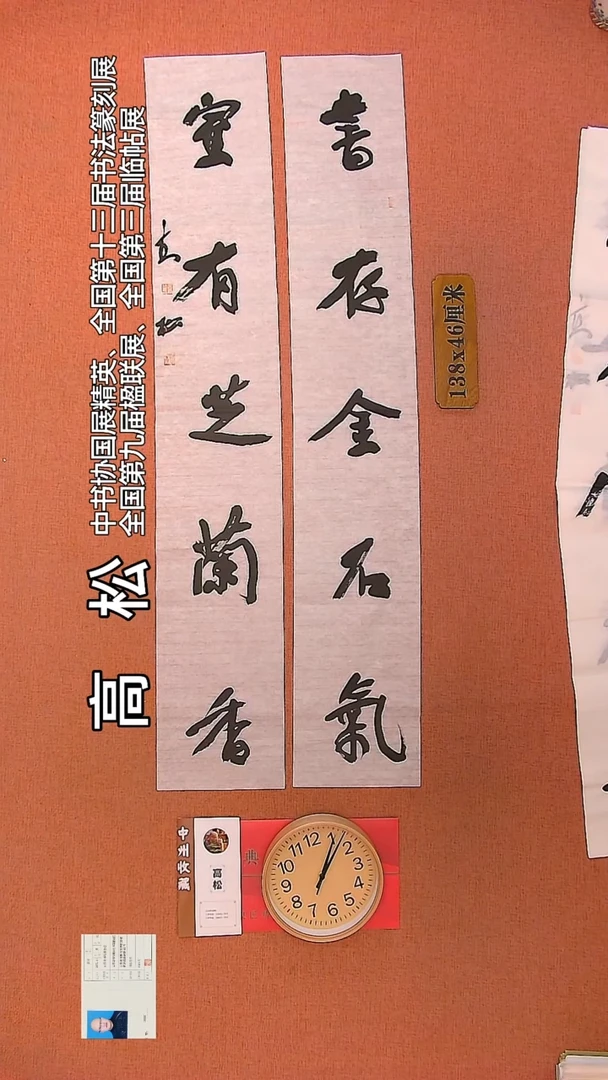 書存金石氣
室有芝蘭香
高松
138x46厘米
高 松
中书协国展精英、全国第十三届书法篆刻展
全国第九届楹联展、全国第三届临帖展
高松
典
12
1
2
3
4
5
6
7
8
9
10
11